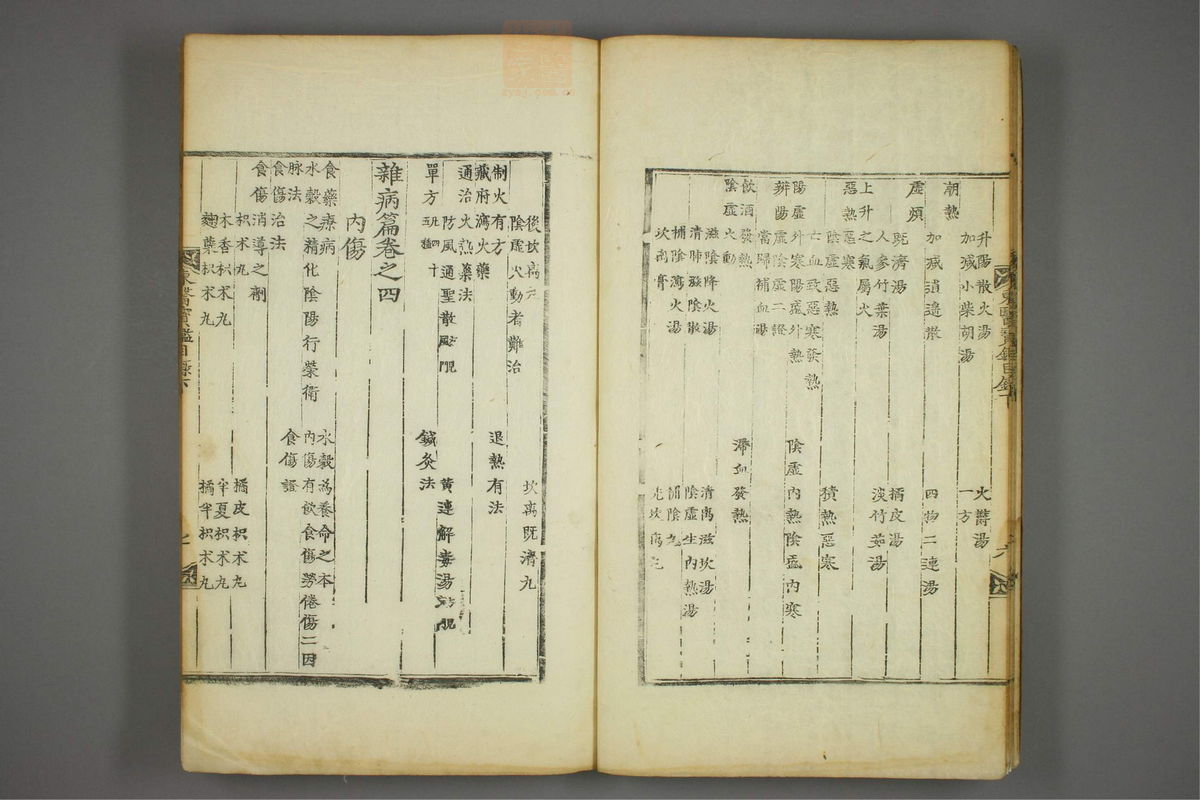 潮熱
升陽散火湯 火鬱湯
加減小柴胡湯 一方
虛煩
加減逍遙散 四物二連湯
既濟湯 橘皮湯
人參竹葉湯 淡竹茹湯
上升之氣屬火
惡熱惡寒
陰虛惡熱 積熱惡寒
亡血致惡寒發熱
陽虛外寒陽盛外熱 陰虛內熱陰盛內寒
辨陽虛陰虛二證
當歸補血湯
飲酒發熱 滯血發熱
陰虛火動
滋陰降火湯 清离滋坎湯
清肺滋陰散 陰虛生內熱湯
補陰瀉火湯 補陰丸
坎离膏
後坎离丸 坎离既濟丸
陰虛火動者難治
制火有方 退熱有法
藏府瀉火藥
通治火熱藥法
防風通聖散 黃連解毒湯
單方 鍼灸法
雜病篇卷之四
內傷
食藥療病 水穀為養命之本
水穀之精化陰陽行榮衛 內傷有飲食傷勞倦傷二因
脉法 食傷證
食傷治法
食傷消導之劑
枳朮丸 橘皮枳朮丸
木香枳朮丸 半夏枳朮丸
麴蘗枳朮丸 橘半枳朮丸